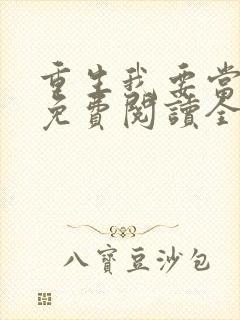 重生我要當
免費閱讀全
八寶豆沙包